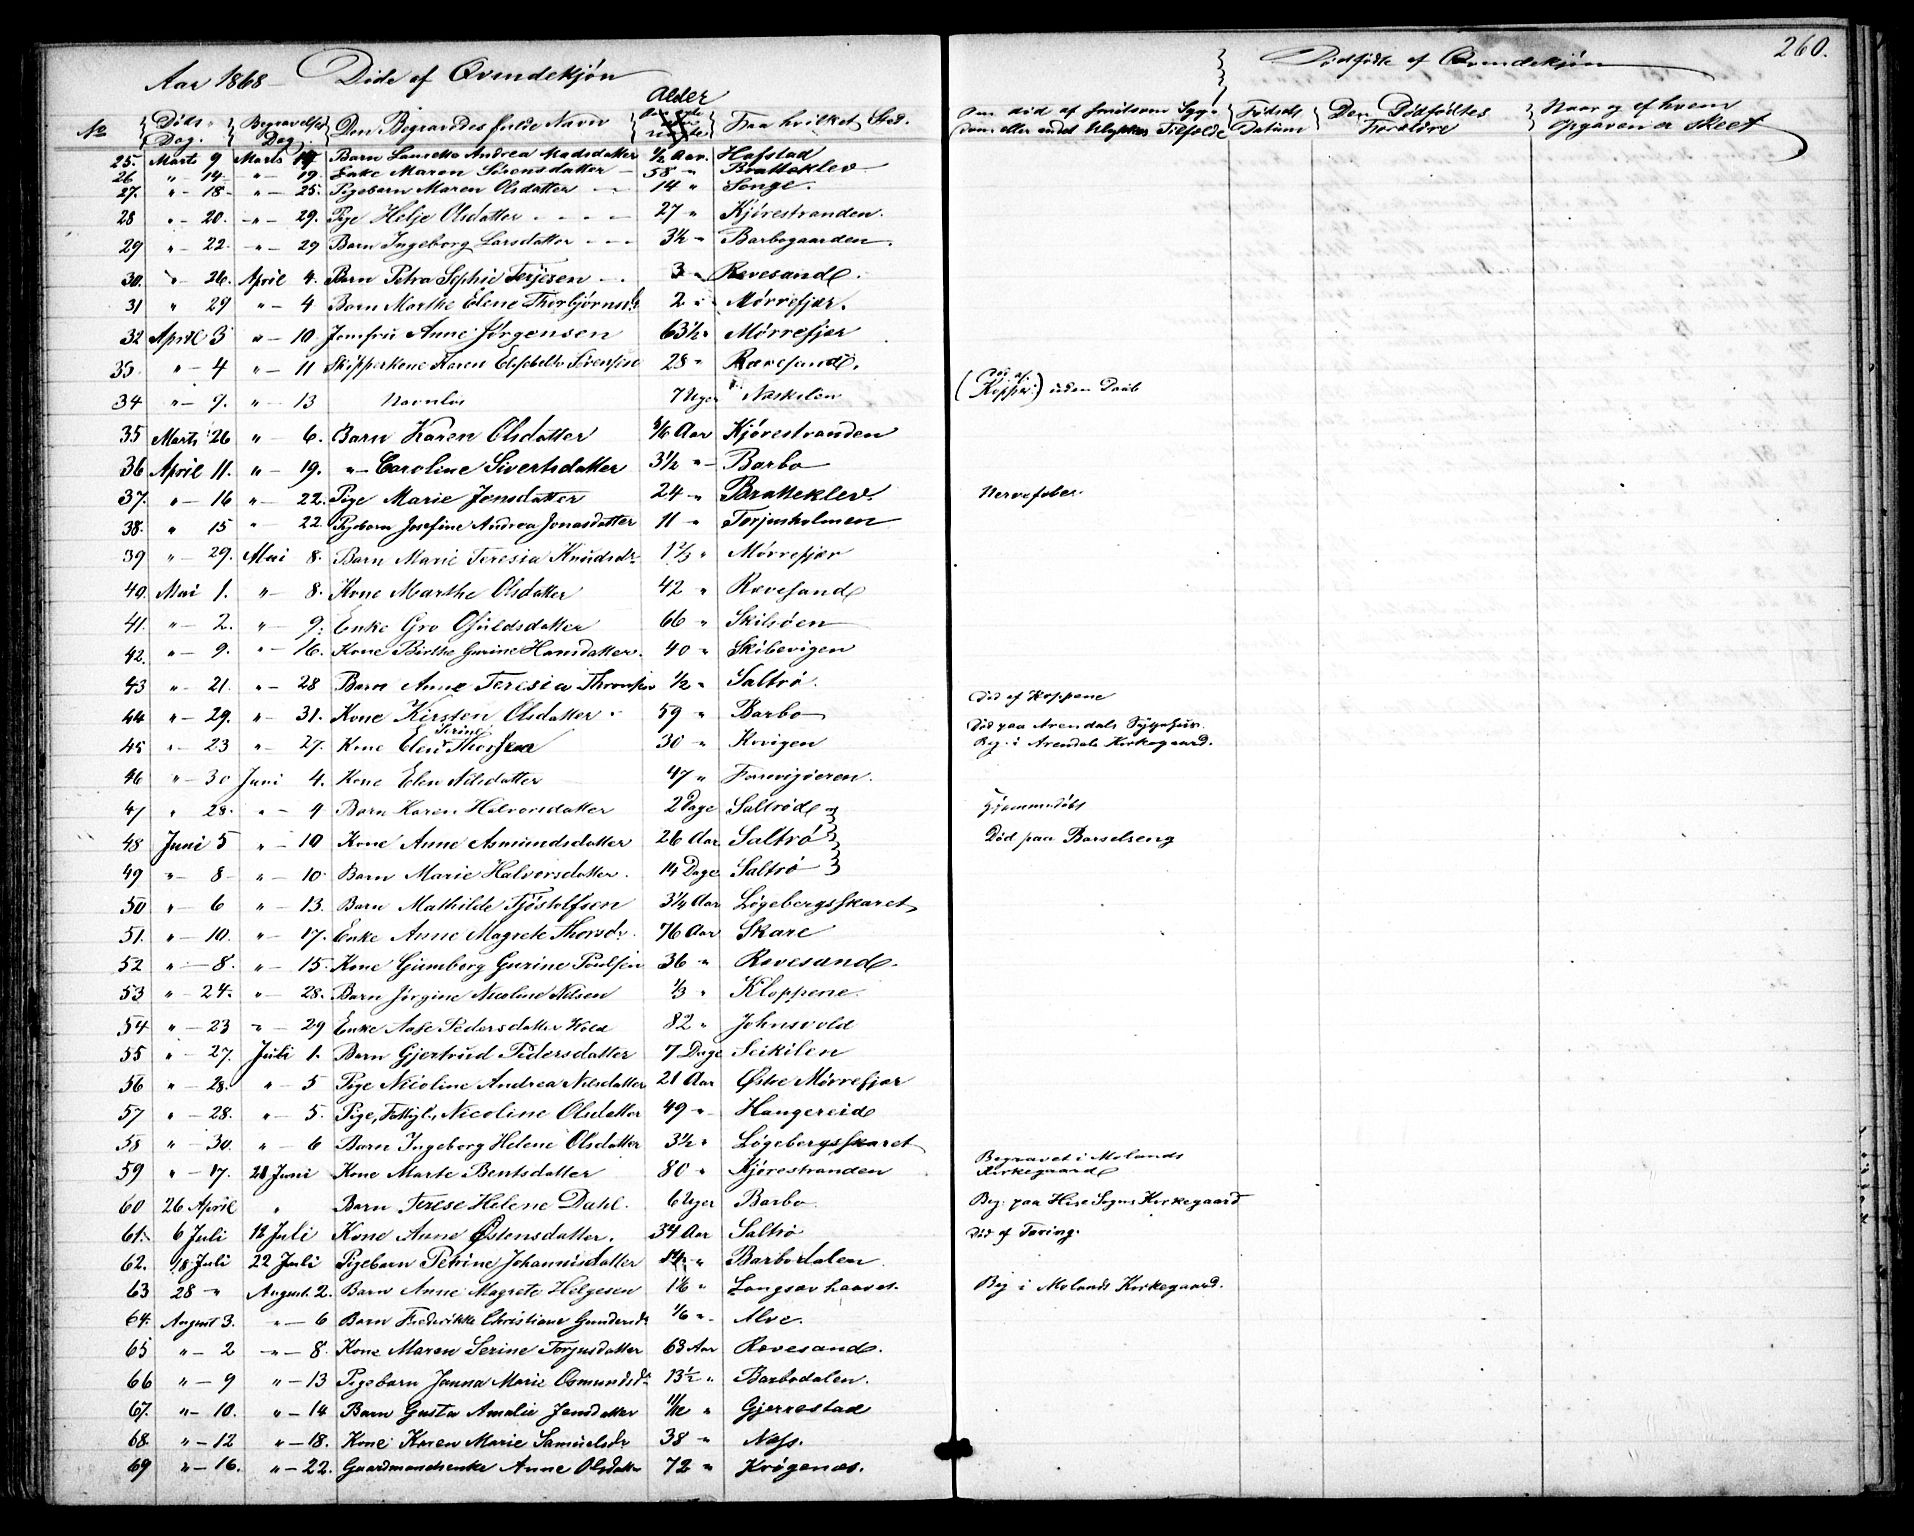 260.
Aar 1868 – Döde af Qvindekjön
Dødfødte af Qvindekjön
No Døds- Dag. Begravelses Dag. Den Begravedes fulde Navn Alder Fra hvilket Sted. Om död af smitsom Syg- dom eller andet Ulykkes Tilfælde Födsels Datum Den Dødfødtes Forældre Naar og af hvem Opgaven er skeet
25. Marts 9 Marts Barn Laurette Andrea Madsdatter ½ Aar. Hafstad
26 " – 14 – " – 19. Enke Maren Sörensdatter – 58 " Bratteklev
27. " – 18 – " – 25. Pigebarn Maren Olsdatter 14 " Songe.
28 " – 20. – " – 29. Pige Helje Olsdatter 27 " Kjörestranden.
29 " – 22. – " – 29 Barn Ingeborg Larsdatter 3½ " Barbogaarden.
30. " – 26. April 4. Barn Petra Sophie Terjesen 3 " Revesand.
31 " 29 " – 4 Barn Marthe Elene Thorbjörnsd. 2 " Mörrefjær.
32 April 3 " – 10 Jomfru Anne Jörgensen 63½ " Mörrefjær
33. " – 4 " – 11 Skipperkone Karen Elisebeth Sörensen 28 " Rævesand.
34 " – 9. " – 13 Navnlös 7 Uger Naskilen (Död af Kopper) uden Daab
35 Marts 26 " – 6. Barn Karen Olsdatter Aar Kjörestranden
36 April 11. " – 19. " – Caroline Sivertsdatter 3½ " – Barbo
37. " – 16 " – 22. Pige Marie Jensdatter 24 " Bratteklev. Nervefeber.
38. " 15 " – 22. Pigebarn Josefine Andrea Jonasdatter 11 " Terjusholmen
39 " – 29. Mai 8. Barn Marie Teresia Knudsdr. 1⅔ " Mörrefjær
40. Mai 1. " – 8. Kone Marthe Olsdatter 42 " Rævesand
41. " – 2. " – 9. Enke Gro Osuldsdatter 66 " Skilsöen
42. " – 9. " – 16. Kone Birthe Gurine Hansdatter. 40 " Skibevigen
43 " – 21. " – 28 Barn Anne Teresia Thronsen ½ " Saltrö.
44 " – 29. " – 31. Kone Kirsten Olsdatter 59 " Barbo Död af Koppene
45 " – 23 " – 27. Kone Elen Serine 30 " Kvigen Död paa Arendals Sygehus. Beg. i Arendals Kirkegaard.
46 " – 30 Juni 4. Kone Elen Nilsdatter 47 "
47 " 28. " – 4 Barn Karen Halvorsdatter 2 Dage Saltröd Hjemmedöbt
48 Juni 5 " – 10 Kone Anne Asmundsdatter 26 Aar Saltrö Död paa Barselseng
49 " – 8 " – 10. Barn Marie Halvorsdatter. 14 Dage Saltrö
50 " – 6 " – 13. Barn Mathilde Tjöstolfsen 3¼ Aar Lögebergsskaret
51. " – 10. " – 17. Enke Anne Magrete Thorsdr. 76 Aar Skare
52 " – 8. " – 15. Kone Gunborg Gurine Poulsen 36 " Revesand.
53 " – 24. " – 28. Barn Jörgine Nicoline Nilsen ⅓ " Kloppene.
54 " – 23 " – 29 Enke Aase Pedersdatter 82 " Johnsvold
55 " – 27. Juli 1. Barn Gjertrud Pedersdatter 7 Dage Seikilen
56 " – 28. " – 5 Pige Nicoline Andrea Nilsdatter 21 Aar Östre Mörrefjær
57 " – 28. " – 5. Pige, Fattigl., Nicoline Olsdatter 49 " Hangereid
58 " – 30. " – 6 Barn Ingeborg Helene Olsdatter 3½ " Lögebergsskaret
59 " – 17. 21 Juni Kone Marte Bentsdatter 80 " Kjörestranden Begravet i Molands Kirkegaard
60 26 April " Barn Terese Helene Dahl. 6 Uger Barbo Beg. paa Hisø Sogns Kirkegaard
61. 6 Juli 12 Juli Kone Anne Östensdatter. 34 Aar Saltrö Död af Tæring.
62. 18 Juli 22 Juli Pigebarn Petrine Johannisdatter " Barbodalen.
63 28 " August 2. Barn Anne Magrete Helgesen 1⅙ " Langsævhaavet. Beg i Molands Kirkegaard.
64. August 3. " – 6 Barn Frederikke Christiane Gundersdr ⅙ " Alve.
65 " – 2 – " – 8. Kone Maren Serine Torjusdatter 63 Aar Rævesand.
66 " – 9 " – 13 Pigebarn Janna Marie Osmundsdr 13½ " Barbodalen.
67. " – 10. " – 14 Barn Gusta Amalie Jensdatter 11/12 " Gjerrestad
68. " – 12 " – 18. Kone Karen Marie Samuelsdr 38 " Næs.
69 " – 16. " – 22. Gaardmandsenke Anne Olsdatter 72 " Krögenæs.